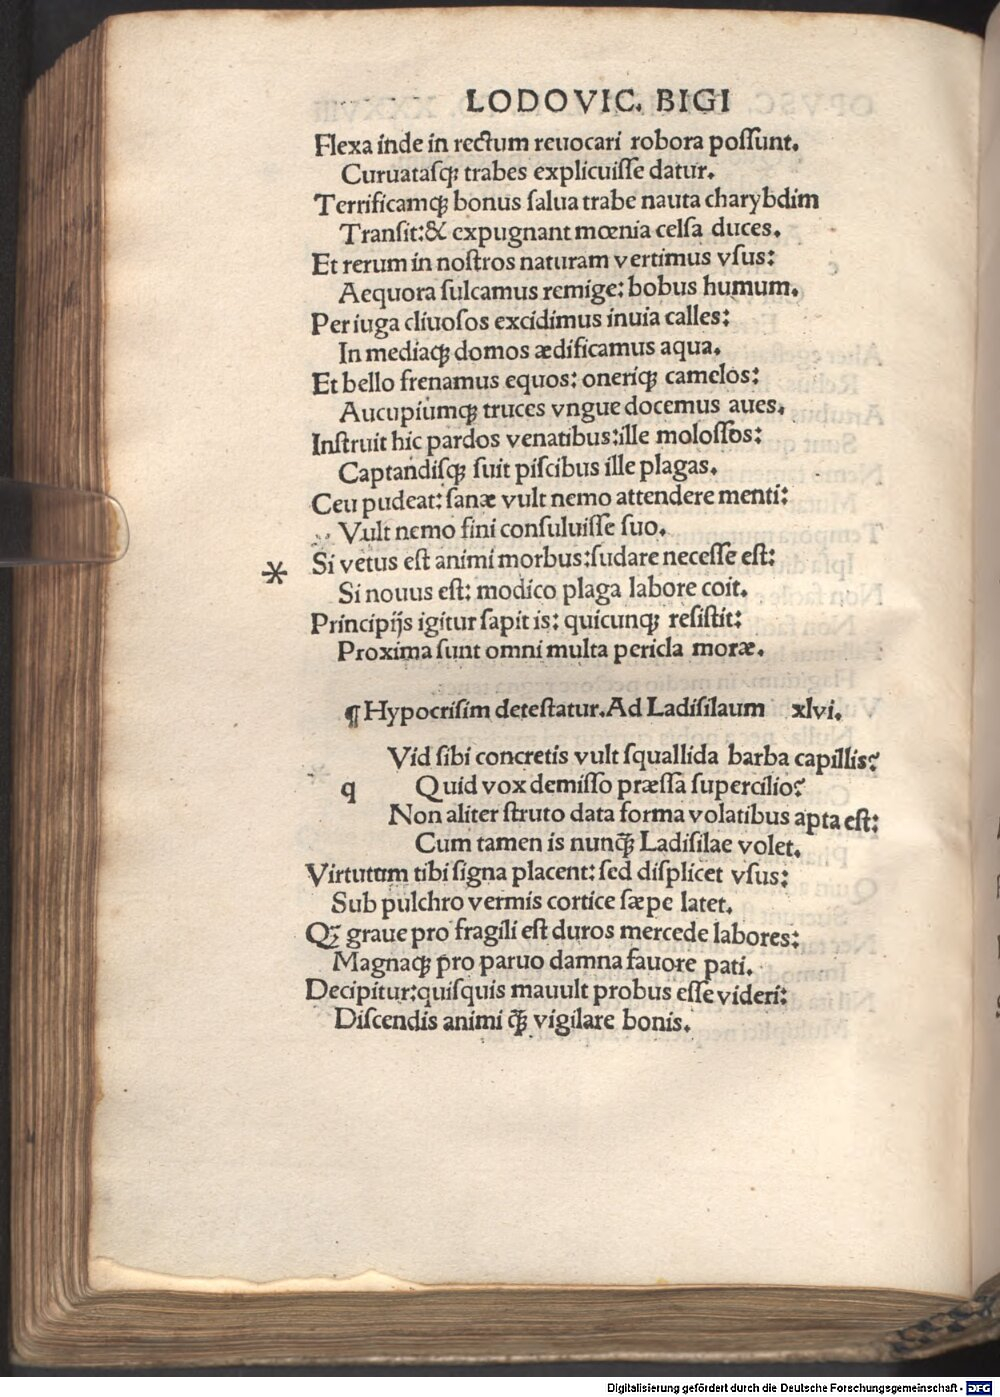 LODOVIC. BIGI
Flexa inde in rectum reuocari robora poſſunt.
Curuataſqꝫ trabes explicuiſſe datur.
Terrificamqꝫ bonus ſalua trabe nauta charybdim
Tranſit:& expugnant mœnia celſa duces.
Et rerum in noſtros naturam vertimus vſus:
Aequora ſulcamus remige: bobus humum.
Per iuga cliuoſos excidimus inuia calles:
In mediaqꝫ domos ædificamus aqua.
Et bello frenamus equos: oneriqꝫ camelos:
Aucupiumqꝫ truces vngue docemus aues.
Inſtruit hic pardos venatibus:ille moloſſos:
Captandiſqꝫ ſuit piſcibus ille plagas.
Ceu pudeat: ſanæ vult nemo attendere menti:
Vult nemo fini conſuluiſſe ſuo.
* Si vetus eſt animi morbus:ſudare neceſſe eſt:
Si nouus eſt: modico plaga labore coit.
Principijs igitur ſapit is: quicunqꝫ reſiſtit:
Proxima ſunt omni multa pericla moræ.
¶ Hypocriſim deteſtatur. Ad Ladiſilaum xlvi.
Vid ſibi concretis vult ſquallida barba capillis?
q Quid vox demiſſo præſſa ſupercilio?
Non aliter ſtruto data forma volatibus apta eſt:
Cum tamen is nunqꝫ̃ Ladiſilae volet.
Virtutum tibi ſigna placent: ſed diſplicet vſus:
Sub pulchro vermis cortice ſæpe latet.
Qꝫ̃ graue pro fragili eſt duros mercede labores:
Magnaqꝫ pro paruo damna fauore pati.
Decipitur:quiſquis mauult probus eſſe videri:
Diſcendis animi qꝫ̃ vigilare bonis.
Digitalisierung gefördert durch die Deutsche Forschungsgemeinschaft - DFG